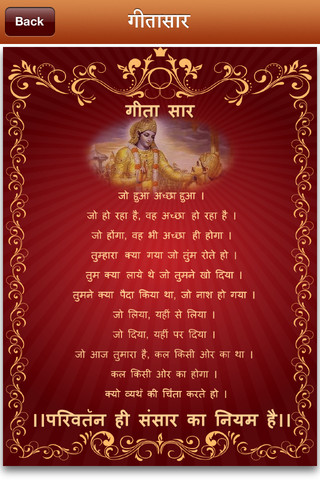 Back
गीतासार
गीता सार
जो हुआ अच्छा हुआ ।
जो हो रहा है, वह अच्छा हो रहा है ।
जो होगा, वह भी अच्छा ही होगा ।
तुम्हारा क्या गया जो तुम रोते हो ।
तुम क्या लाये थे जो तुमने खो दिया ।
तुमने क्या पैदा किया था, जो नाश हो गया ।
जो लिया, यहीं से लिया ।
जो दिया, यहीं पर दिया ।
जो आज तुमारा है, कल किसी ओर का था ।
कल किसी ओर का होगा ।
क्यो व्यर्थ की चिंता करते हो ।
।।परिवर्तन ही संसार का नियम है।।